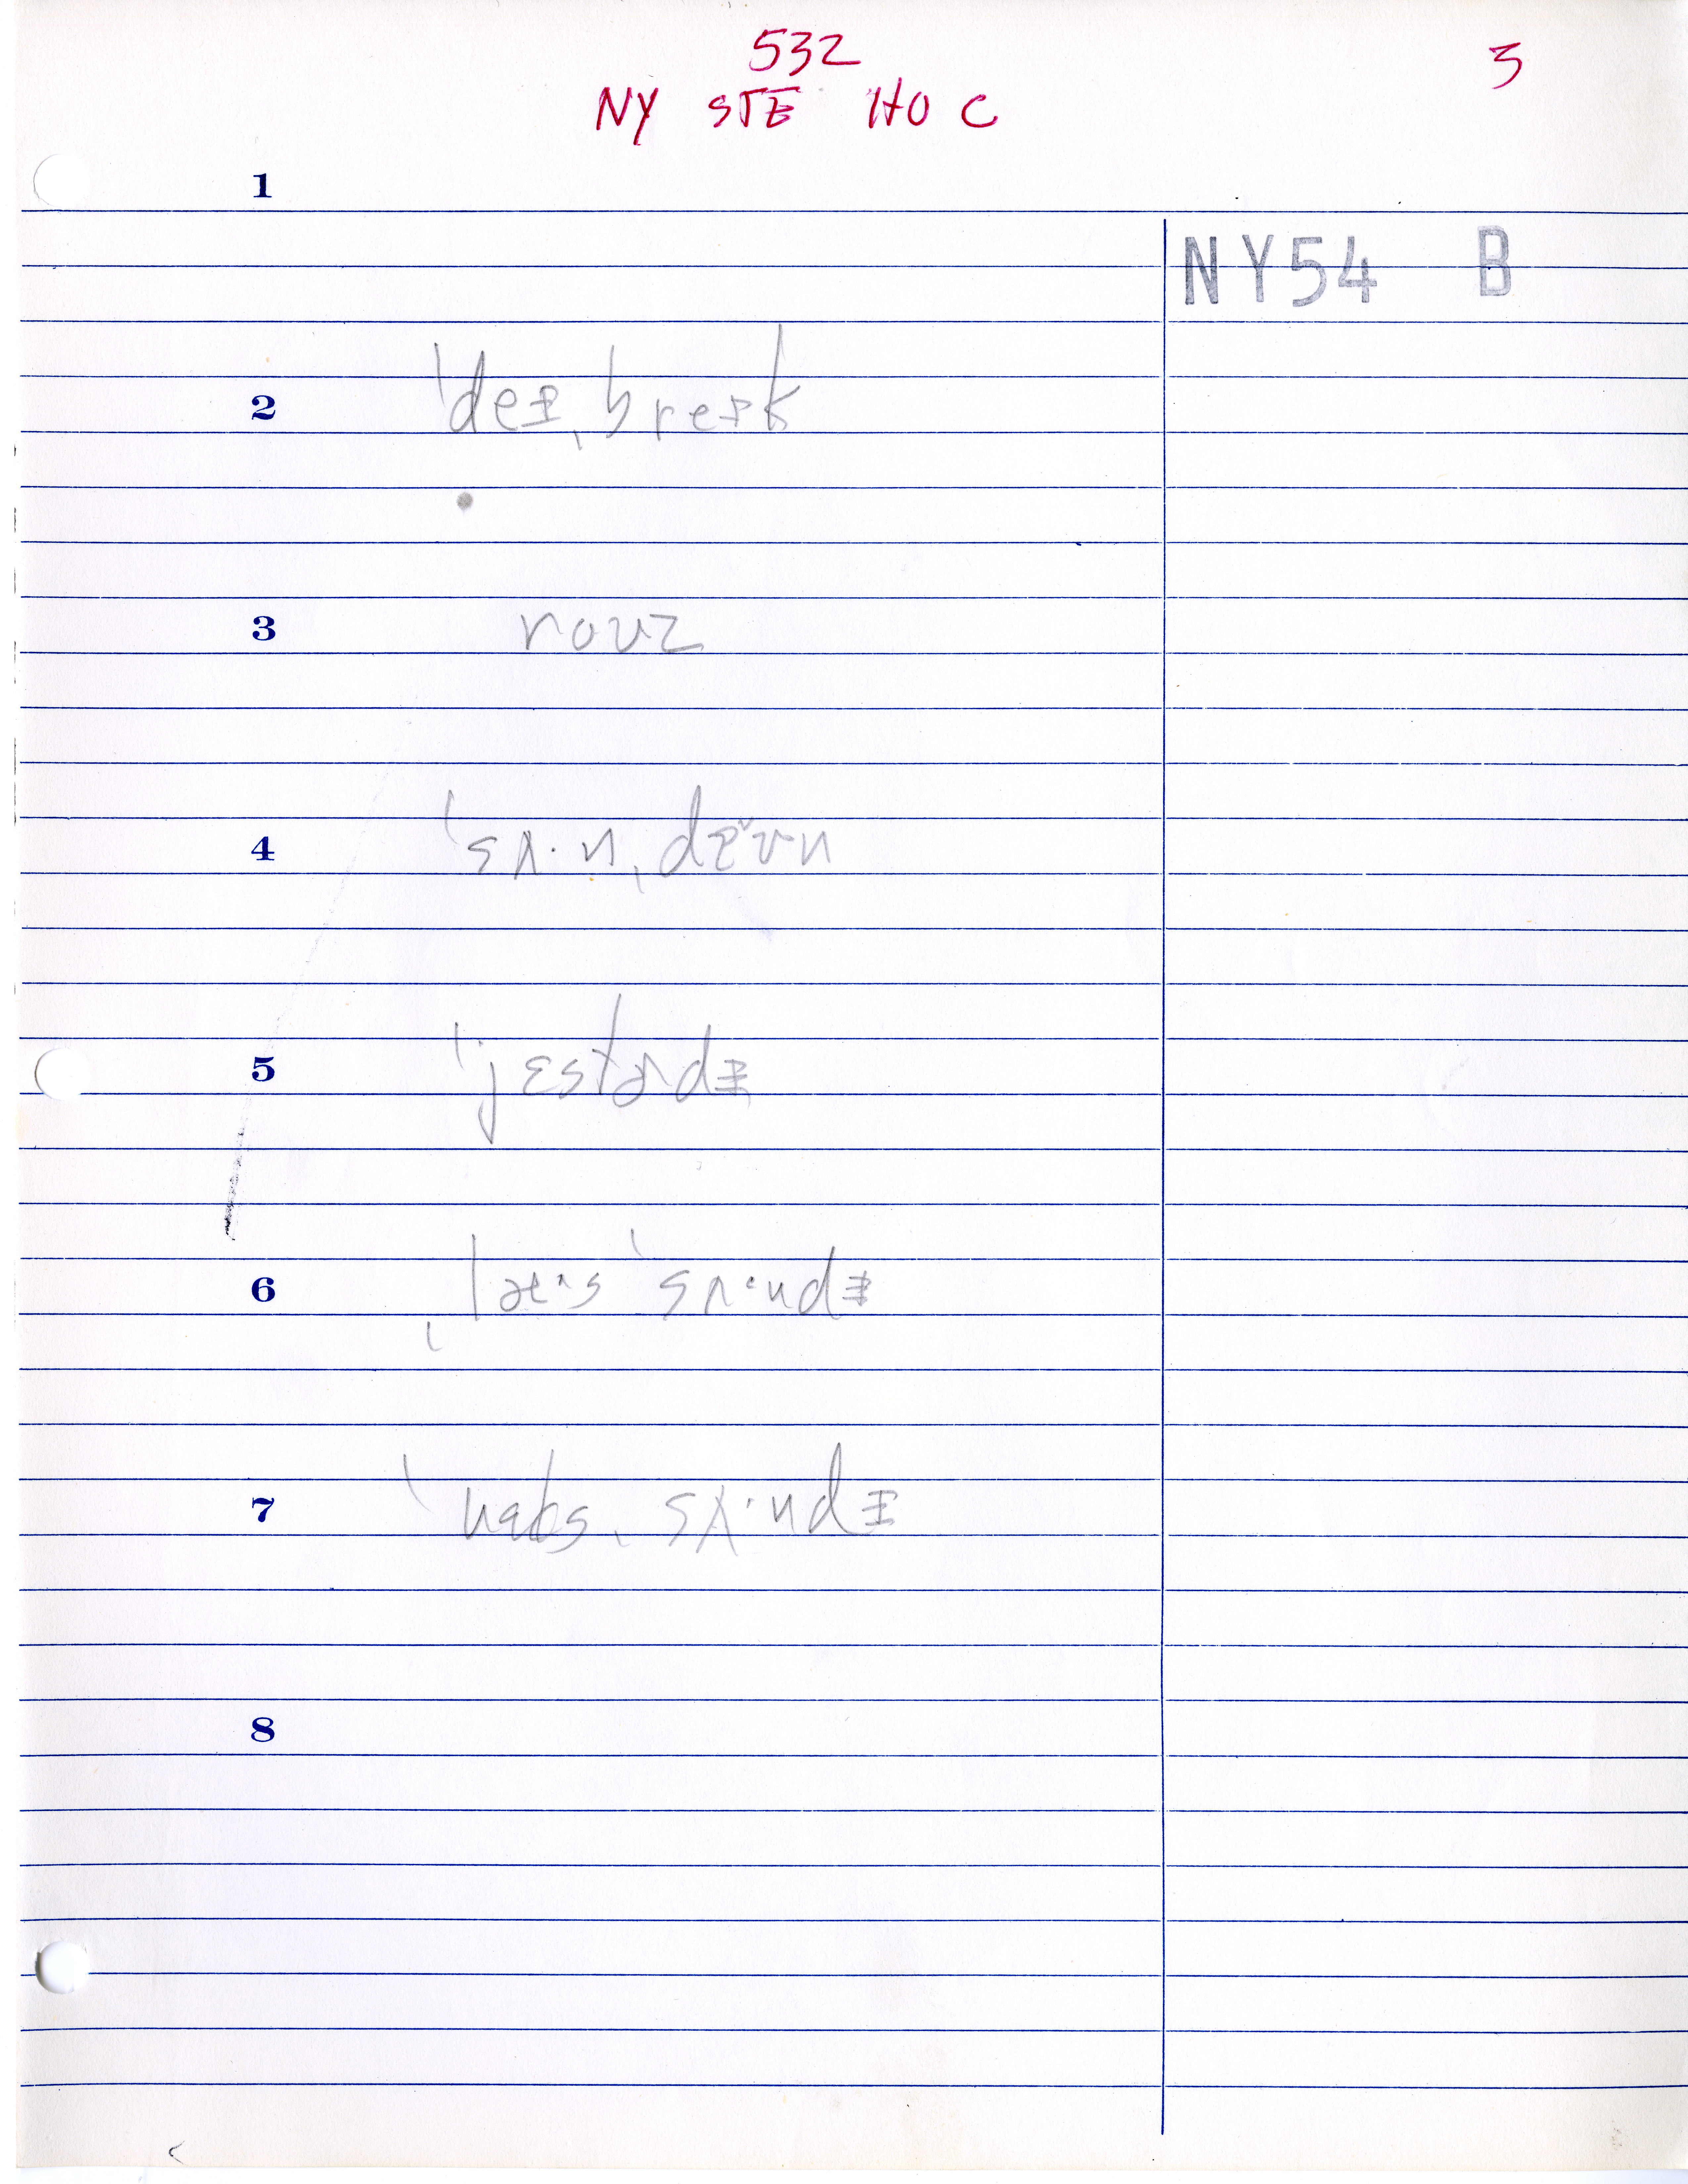 532
3
NY STE HO C
1
NY54 B
2 ˈdeɪˌbreɪk
3 roʊz
4 ˈsʌ·nˌdæ˅ʊn
5 ˈjɛstɚdɪ
6 ˌlæ·ˢs ˈsʌ·ndɪ
7 ˈnɛksˌsʌ·ndɪ
8